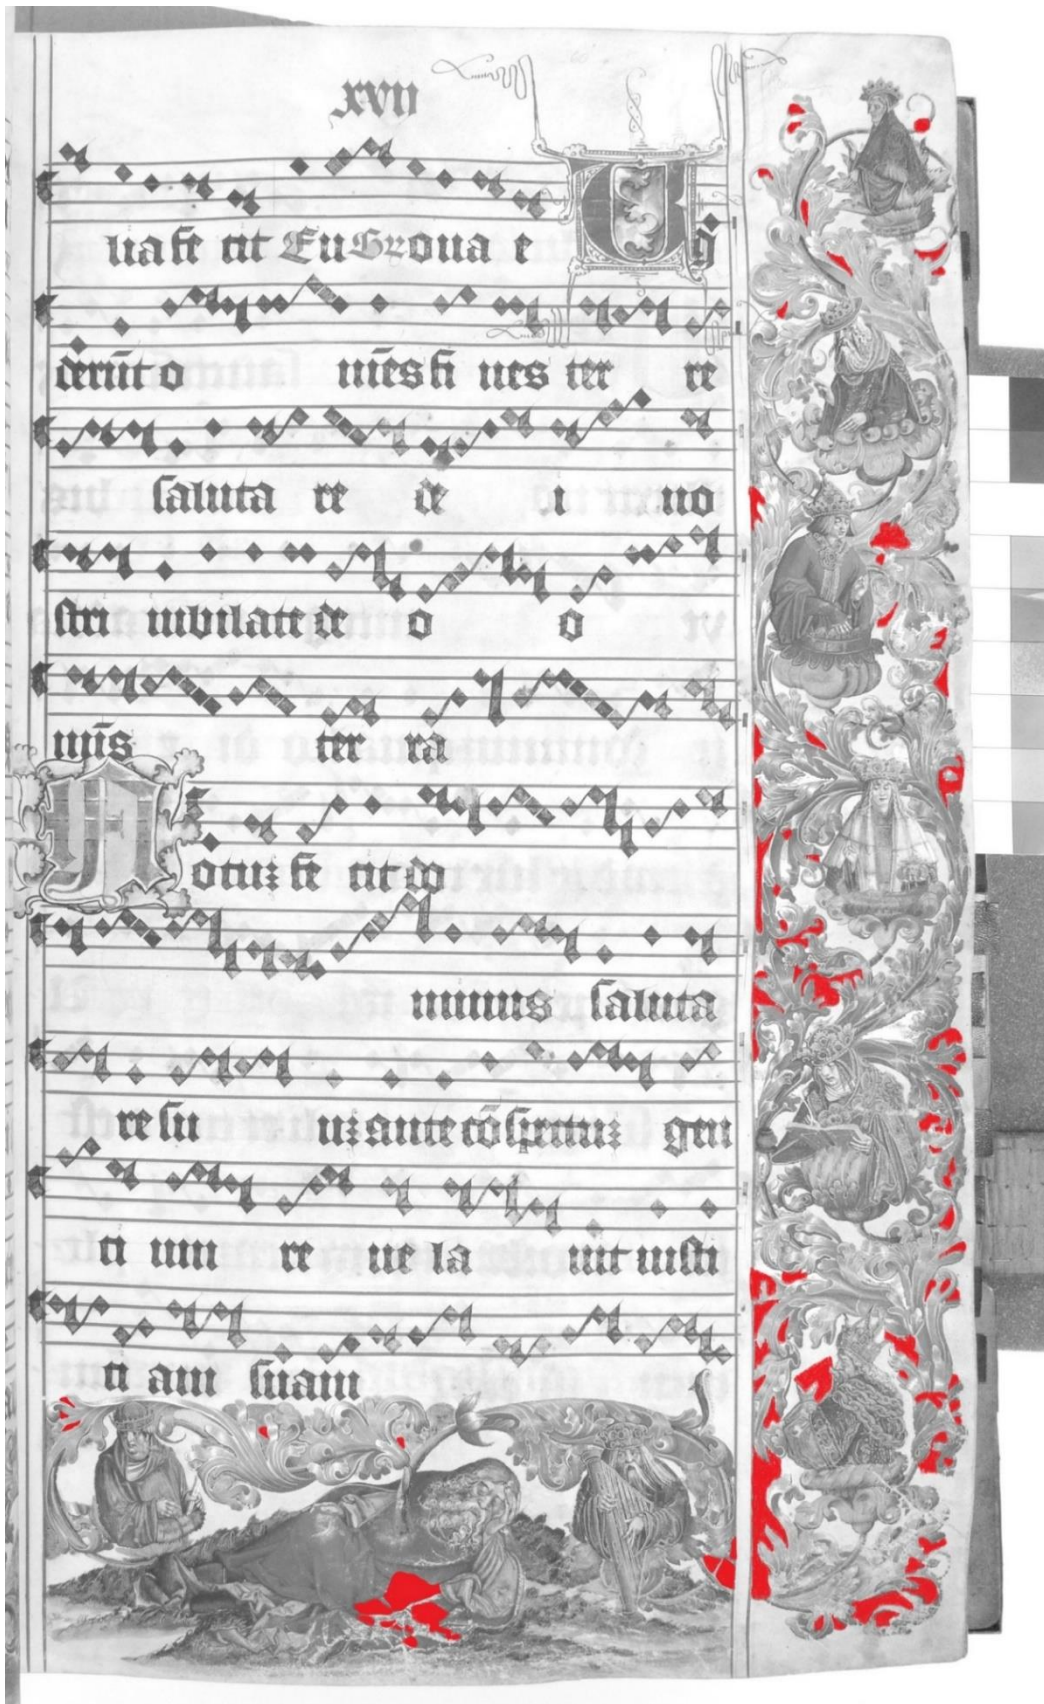 xvii
ua fe cit Eu Grova e U g̃
derūt o m̄es fi nes ter re
saluta re de i no
stri iubilate de o o
mīs ter ra
Notuʒ fe cit do
minus saluta
re su uʒ ante cō spectuʒ gen
ti um re ue la uit iusti
ti am suam